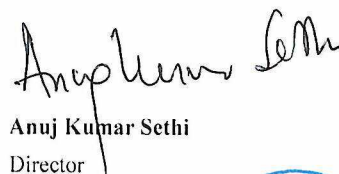 Anuj Kumar Sethi
Anuj Kumar Sethi
Director